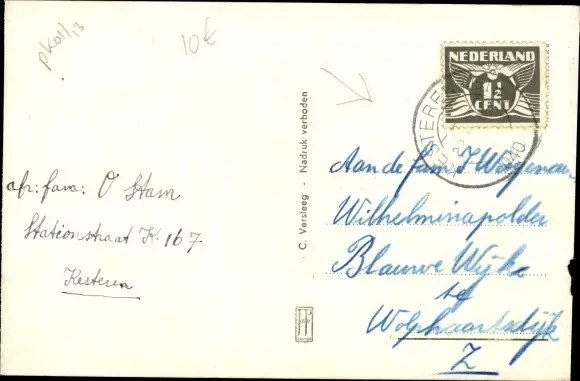 pko11/13
10€
NEDERLAND
1½
CENT
KESTEREN
1940
C. Versleeg - Nadruk verboden
afz: fam: O Stam
Stationstraat K. 167
Kesteren
Aan de fam J Wagenaar
Wilhelminapolder
Blauwe Wijk
te
Wolphaartsdijk
Z